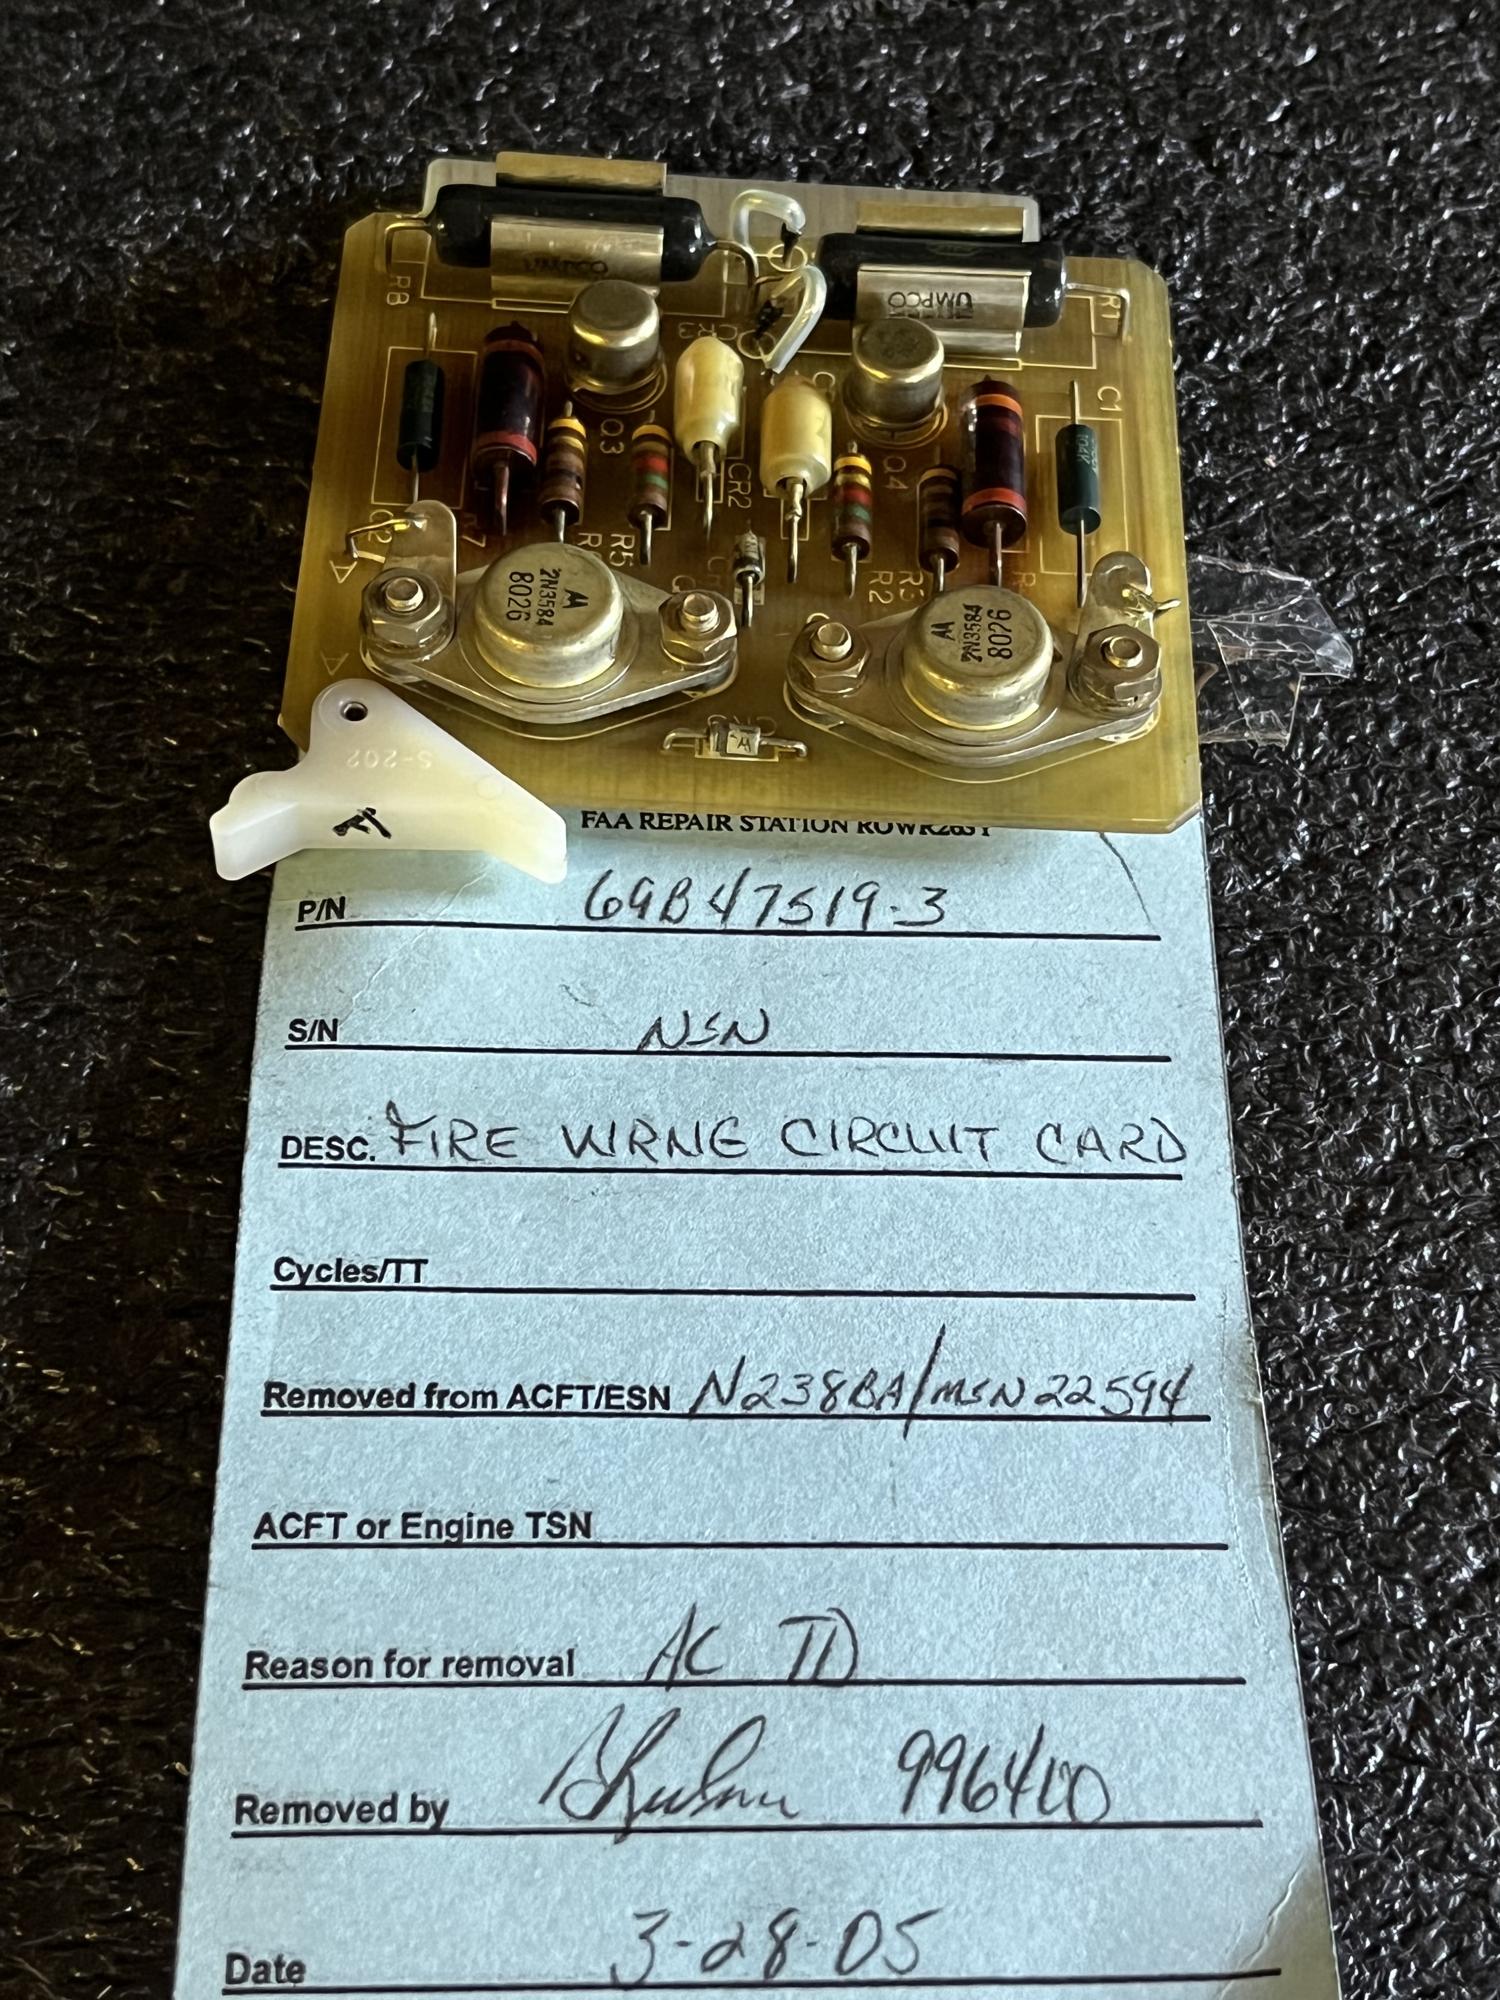 UMPCO
R8
R1
CR3
C1
Q3
Q4
CR2
C2
R5
R2
R3
2N3584
8026
2N3584
8026
S-202
FAA REPAIR STATION
P/N 69B47519-3
S/N NSN
DESC. FIRE WRNG CIRCUIT CARD
Cycles/TT
Removed from ACFT/ESN N238BA/MSN 22594
ACFT or Engine TSN
Reason for removal AC TD
Removed by 996400
Date 3-28-05